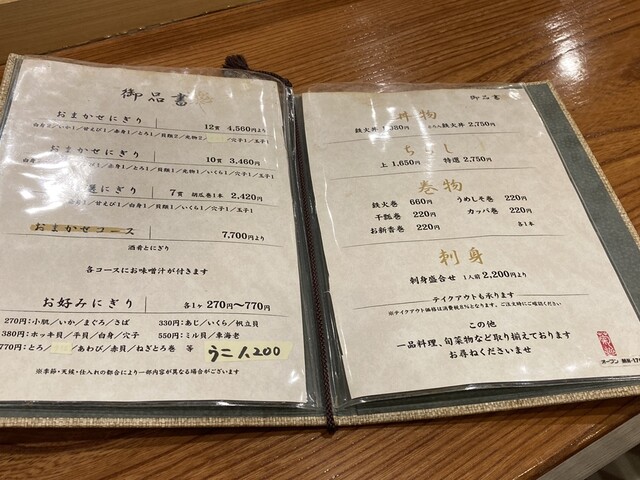 御品書
おまかせにぎり 12貫 4,560円より
白身2/いか1/甘えび1/赤身1/とろ1/貝類2/光物2/穴子1/玉子1
おまかせにぎり 10貫 3,460円
いくら1/穴子1/玉子1
にぎり 7貫 胡瓜巻1本 2,420円
甘えび1/白身1/貝類1/いくら1/玉子1
おまかせコース 7,700円より
酒肴とにぎり
各コースにお味噌汁が付きます
お好みにぎり 各1ヶ 270円〜770円
270円:小肌/いか/まぐろ/さば 330円:あじ/いくら/帆立貝
380円:ホッキ貝/平貝/白身/穴子 550円:ミル貝/車海老
770円:とろ/あわび/赤貝/ねぎとろ巻 等 うに 1,200
※季節・天候・仕入れの都合により一部内容が異なる場合がございます
御品書
丼物
鉄火丼 1,980円 とろ入鉄火丼 2,750円
ちらし
上 1,650円 特選 2,750円
巻物
鉄火巻 660円 うめしそ巻 220円
干瓢巻 220円 カッパ巻 220円
お新香巻 220円 各1本
刺身
刺身盛合せ 1人前 2,200円より
テイクアウトも承ります
※テイクアウト価格は消費税8%となります。ご注文時にご確認ください
この他
一品料理、旬菜物など取り揃えております
お尋ねくださいませ